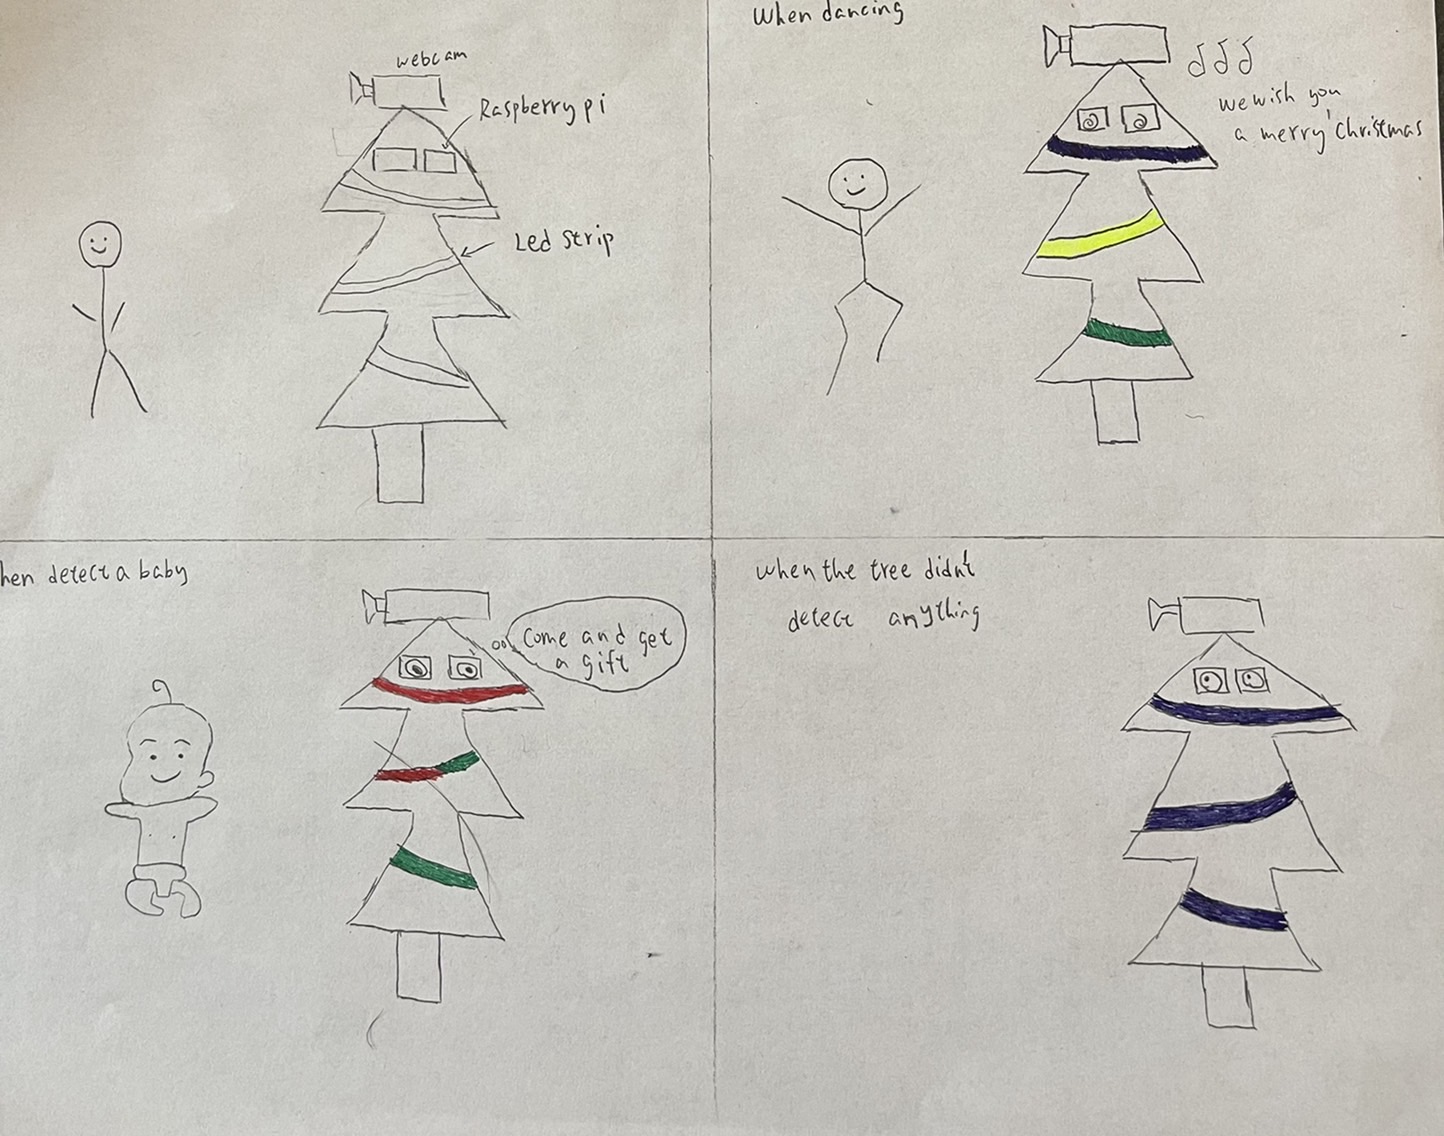 webcam
Raspberry pi
Led strip
When dancing
we wish you
a merry christmas
hen detect a baby
Come and get
a gift
when the tree didn't
detect anything